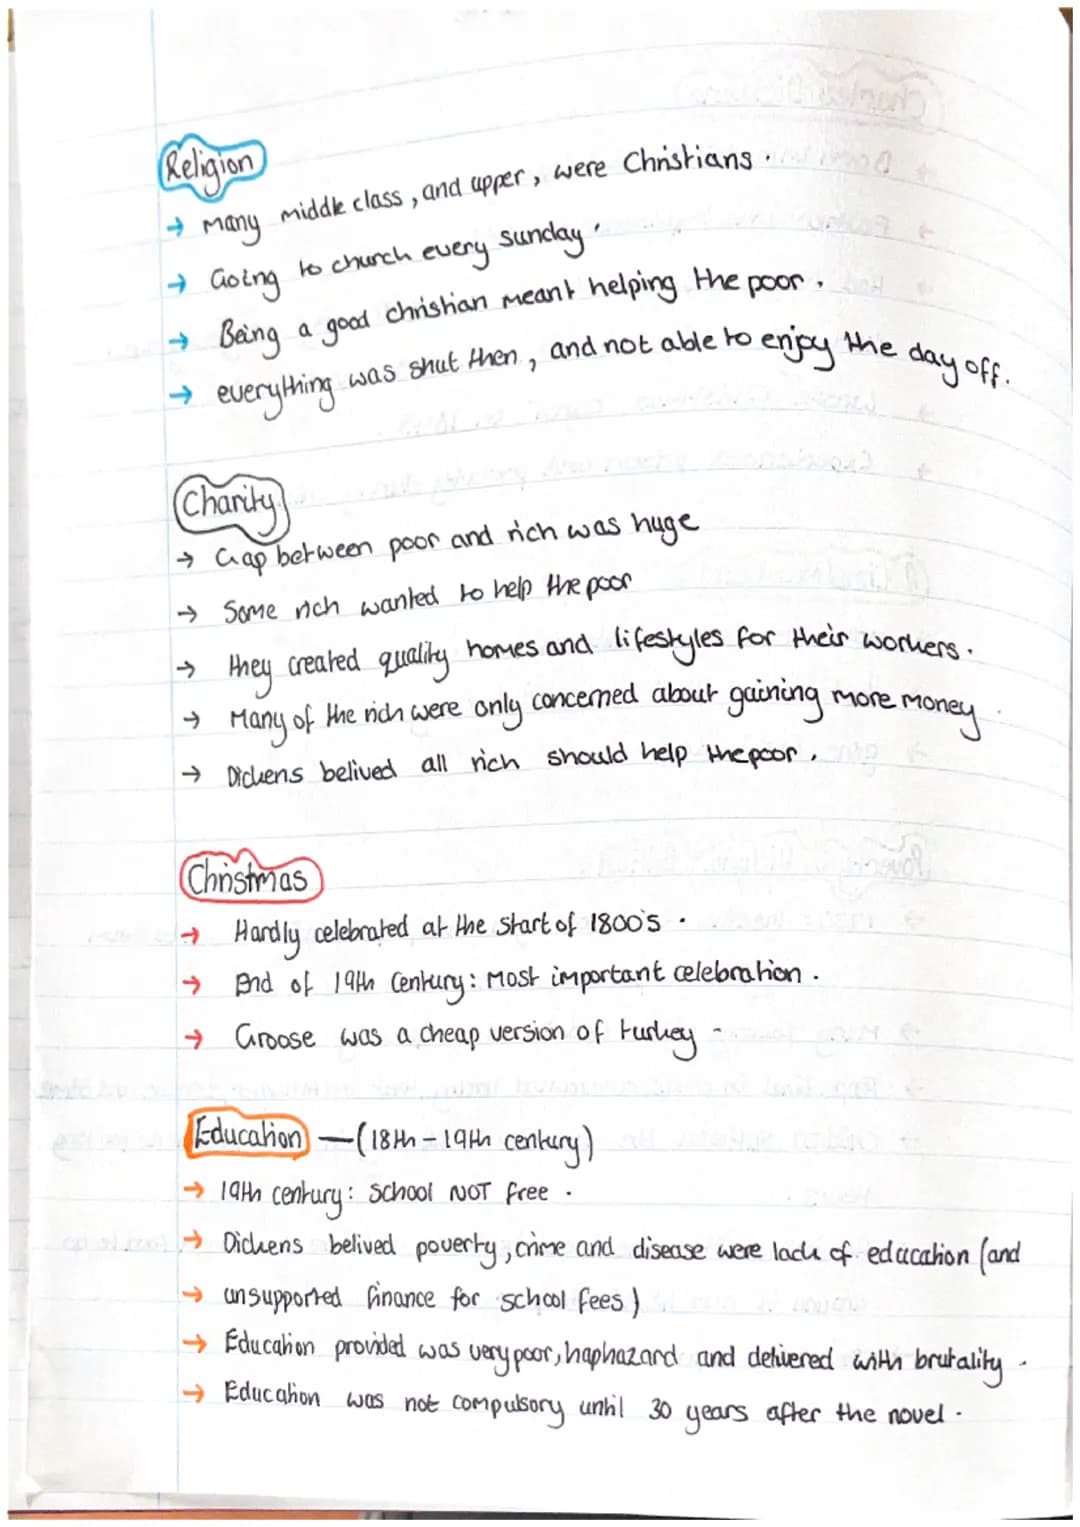 Religion
→ Many middle class, and upper, were Christians.
→ Going to church every Sunday.
→ Being a good christian meant helping the poor.
→ everything was shut then, and not able to enjoy the day off.
Charity
→ Gap between poor and rich was huge
→ Some rich wanted to help the poor
→ they created quality homes and lifestyles for their workers.
→ Many of the rich were only concerned about gaining more money
→ Dickens belived all rich should help the poor.
Christmas
→ Hardly celebrated at the start of 1800's.
→ End of 19th Century: Most important celebration.
→ Goose was a cheap version of turkey -
Education — (18th - 19th century)
→ 19th century: School NOT free.
→ Dickens belived poverty, crime and disease were lack of education (and
→ unsupported finance for school fees)
→ Education provided was very poor, haphazard and delivered with brutality.
→ Education was not compulsory until 30 years after the novel.